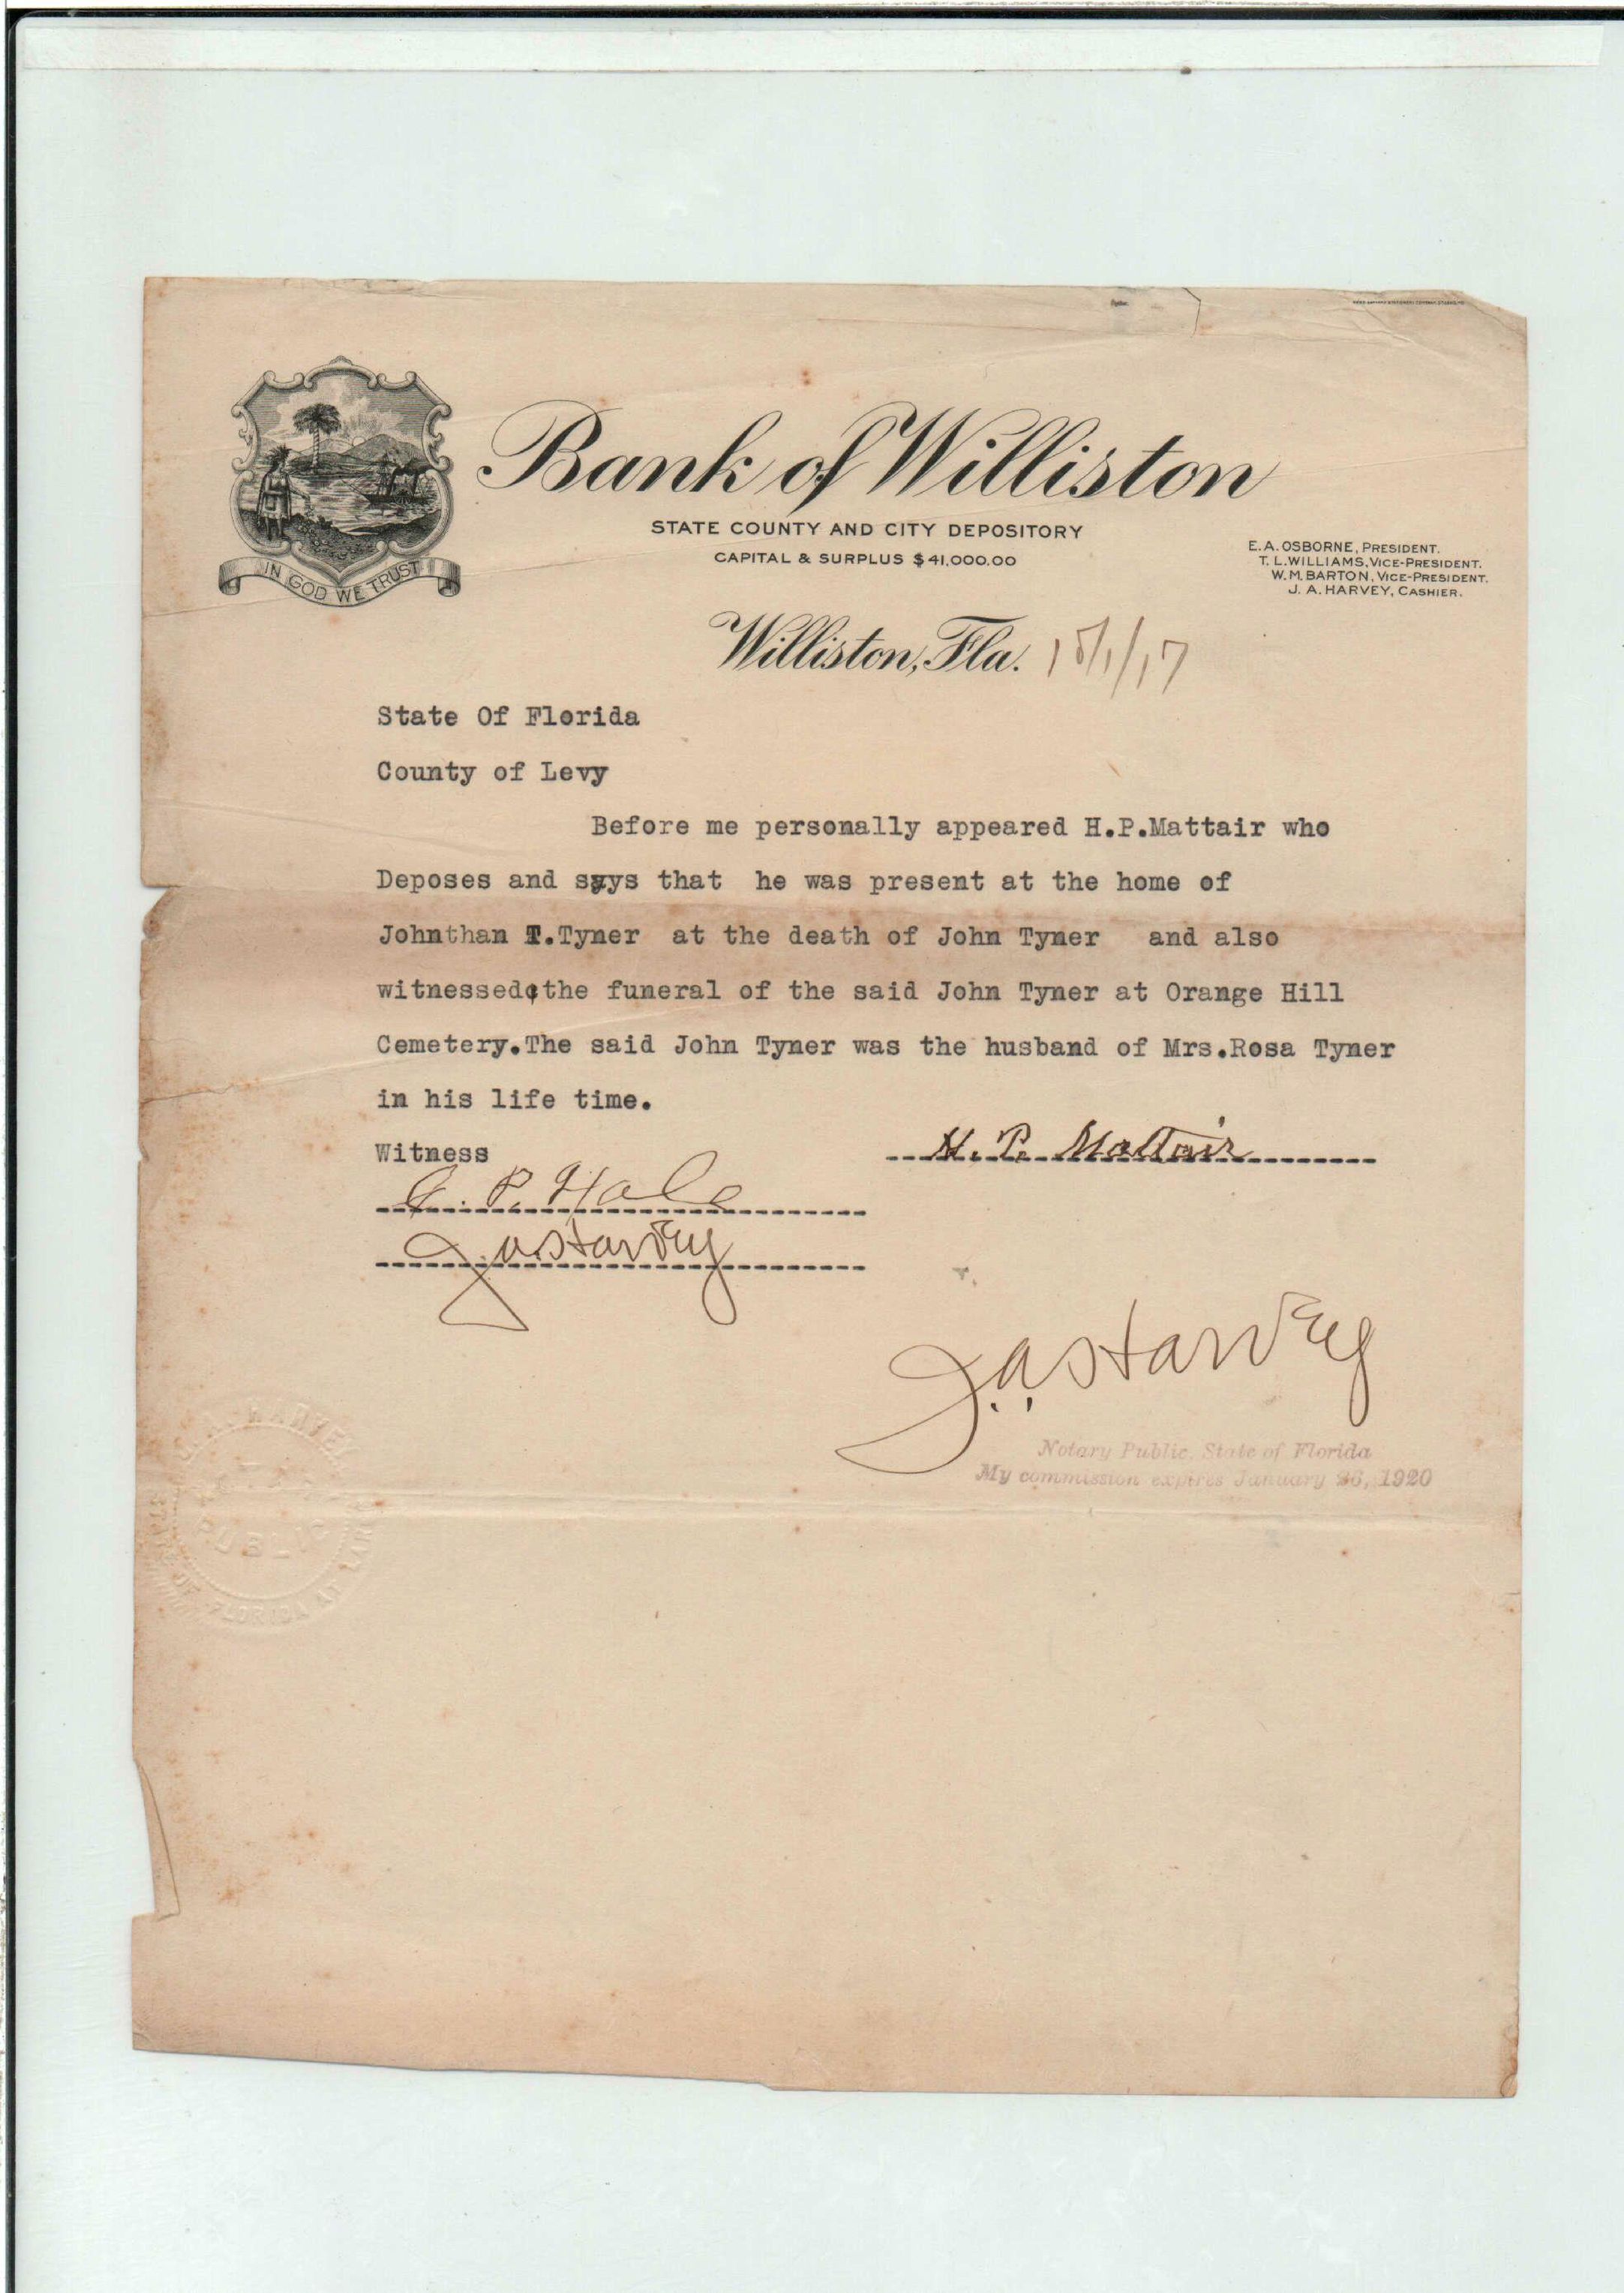 Bank of Williston
STATE COUNTY AND CITY DEPOSITORY
CAPITAL & SURPLUS $41,000.00
E.A. OSBORNE, PRESIDENT.
T. L. WILLIAMS, VICE-PRESIDENT.
W. M. BARTON, VICE-PRESIDENT.
J. A. HARVEY, CASHIER.
IN GOD WE TRUST
Williston, Fla.
State Of Florida
County of Levy
Before me personally appeared H.P.Mattair who
Deposes and says that he was present at the home of
Johnthan T.Tyner at the death of John Tyner and also
witnessed the funeral of the said John Tyner at Orange Hill
Cemetery.The said John Tyner was the husband of Mrs.Rosa Tyner
in his life time.
Witness
H. P. Mattair
P. Hale
J.A. Harvey
J.A. Harvey
Notary Public, State of Florida
My commission expires January 26, 1920
J. A. HARVEY
NOTARY
PUBLIC
STATE OF FLORIDA AT LARGE